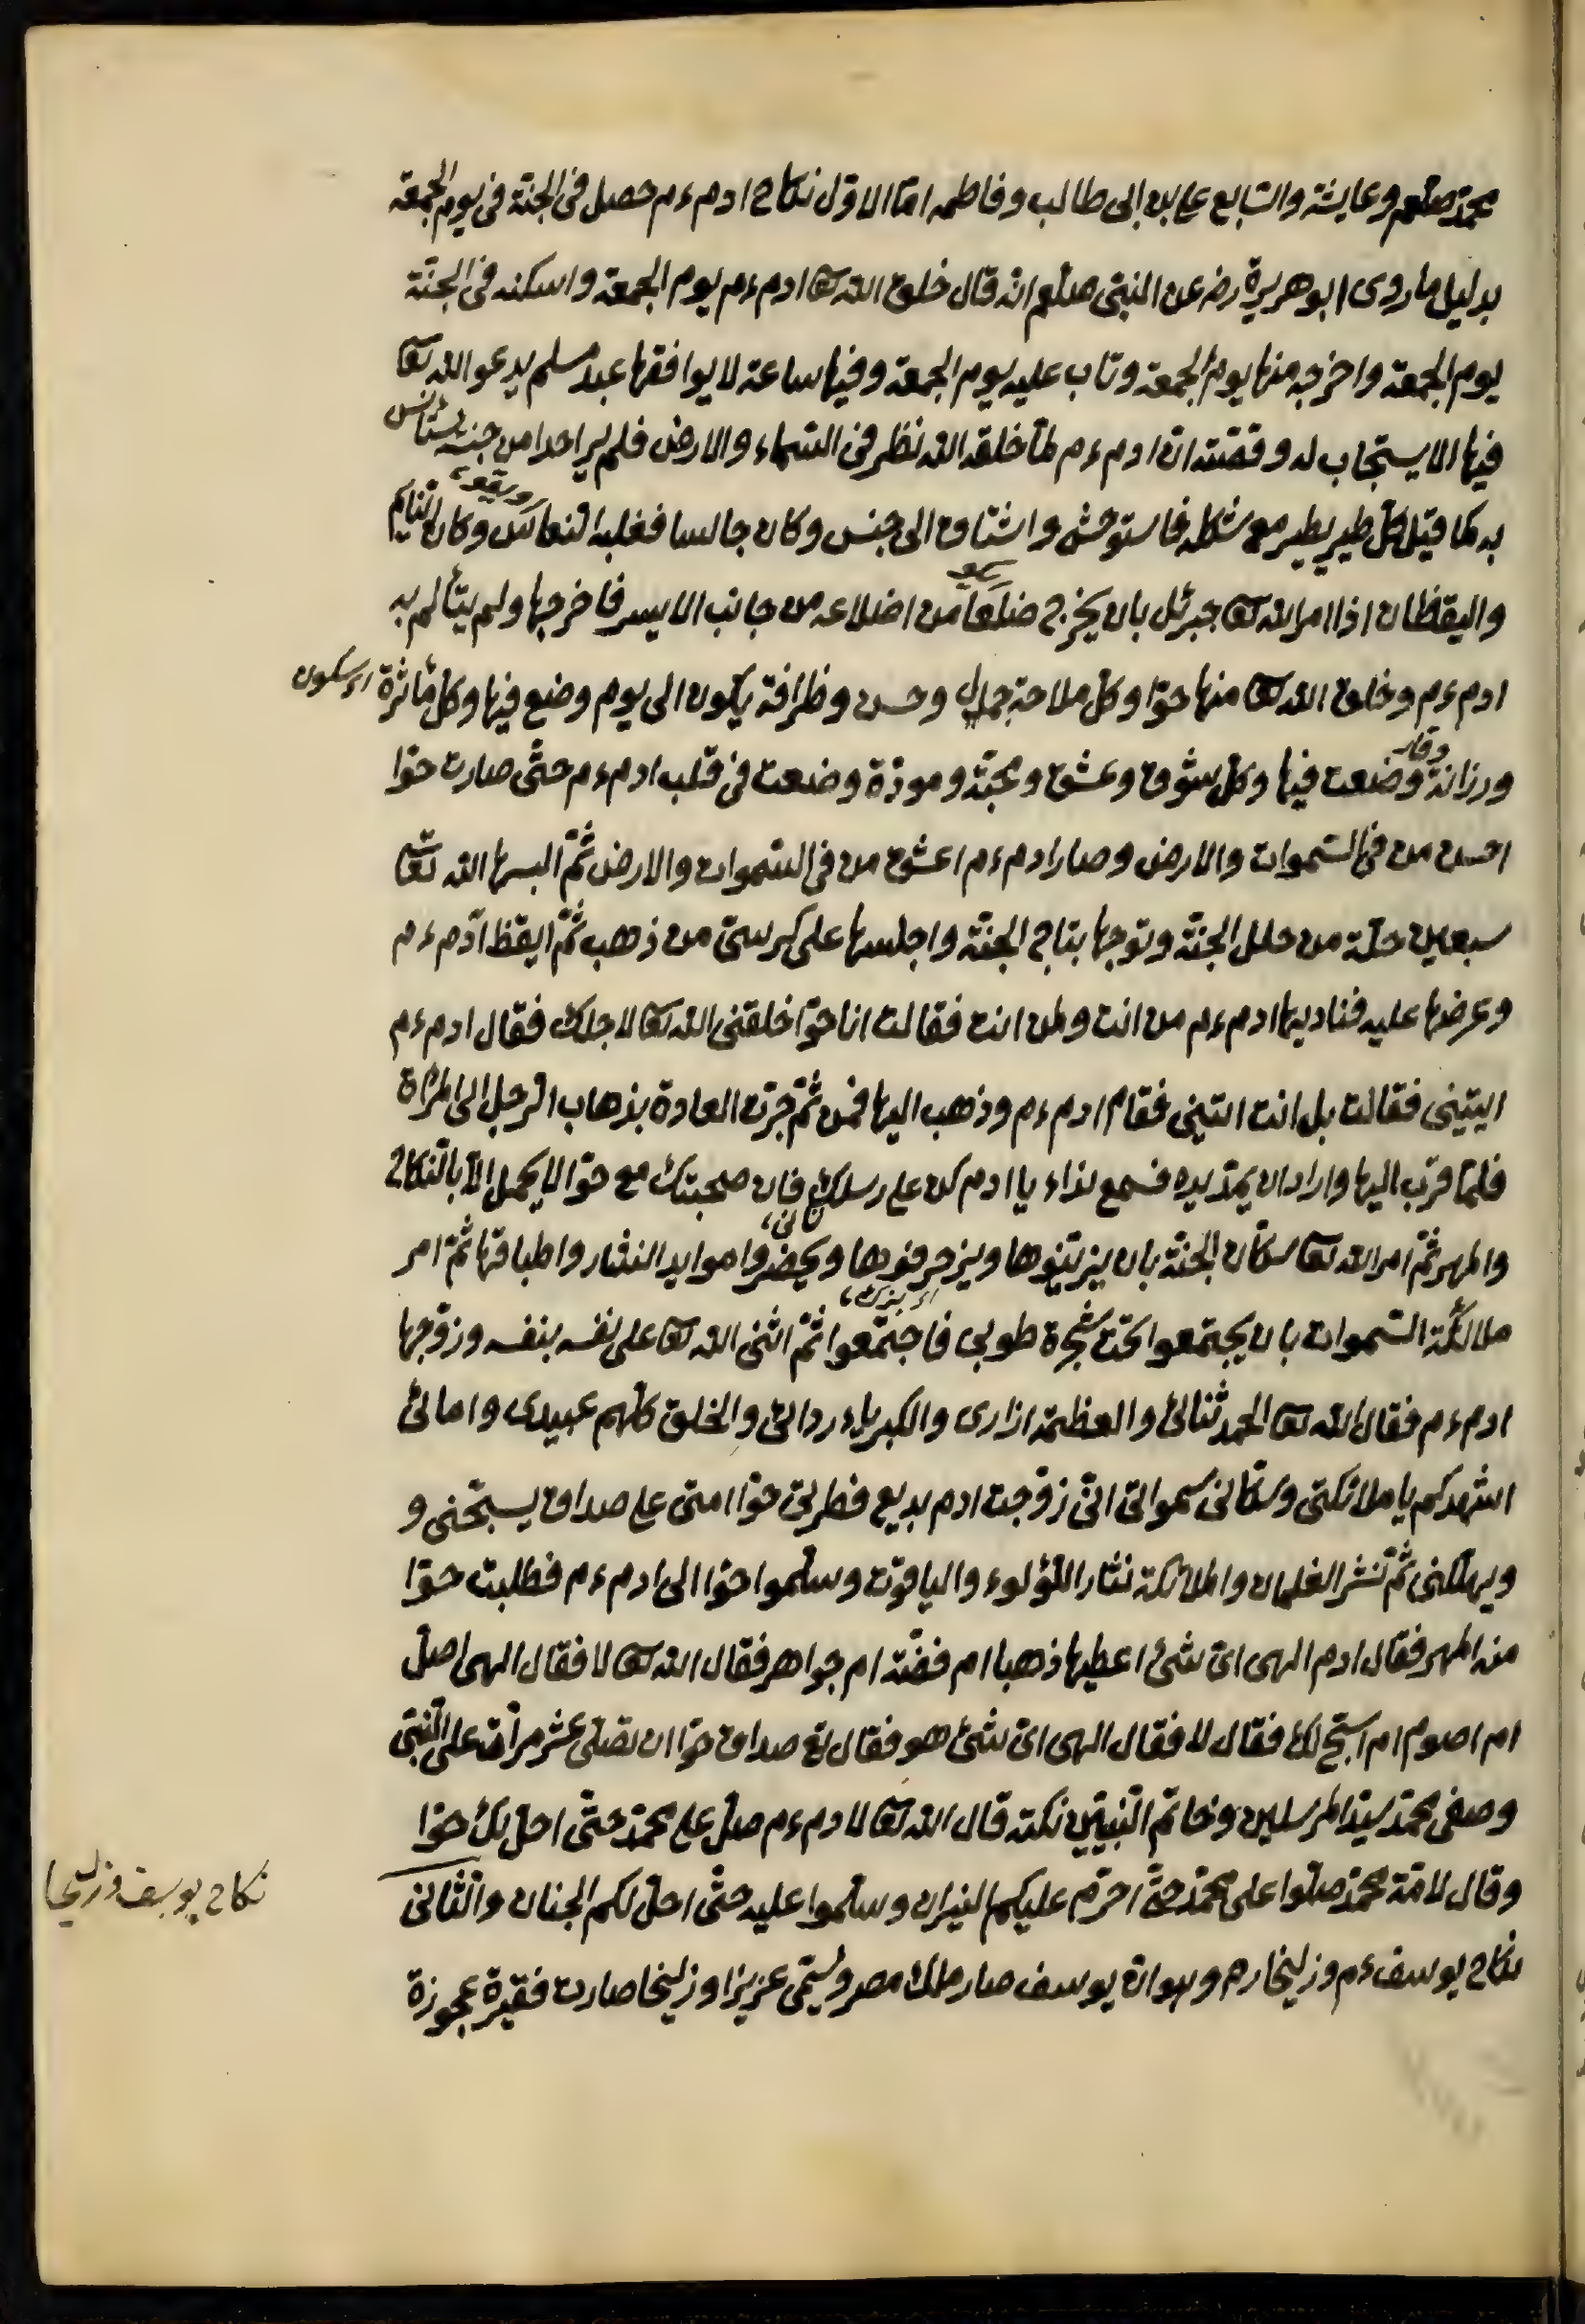 محمّد صلعم وعايشة والسّابع على بن ابى طالب وفاطمه امّا الاوّل نكاح ادم ءم حصل فى الجنّة فى يوم الجمعة
بدليل ما روى ابو هريرة رضه عن النبىّ صلعم انّه قال خلق الله تعا ادم ءم يوم الجمعة واسكنه فى الجنّة
يوم الجمعة واخرجه منها يوم الجمعة وتاب عليه يوم الجمعة وفيها ساعة لا يوافقها عبد مسلم يدعو الله تعا
فيها الا يستجاب له وقصّته انّ ادم ءم لمّا خلقه الله نظر فى السّماء والارض فلم ير احدا من جنسه يستأنس
به كما قيل كلّ طير يطير مع شكله فاستوحش واشتاق الى جنس وكان جالسا فغلبه النعاس وكان النايم
واليقظان اذا امر الله تعا جبرئل بان يخرج ضلعًا من اضلاعه من جانب الايسر فاخرجها ولم يتألم به
ادم ءم وخلق الله تعا منها حوّا وكل ملاحة جمال وحسن وظرافة يكون الى يوم وضع فيها وكل مأثرة
اى سكون
وقار
ورزانة وضعت فيها وكل شوق وعشق ومحبّة ومودّة وضعت فى قلب ادم ءم حتّى صارت حوّا
احسن من فى السّموات والارض وصار ادم ءم اعشق من فى السّموات والارض ثمّ البسها الله تعا
سبعين حلّة من حلل الجنّة وتوجها بتاج الجنّة واجلسها على كرسىّ من ذهب ثمّ ايقظ ادم ءم
وعرضها عليه فناديها ادم ءم من انت ولمن انت فقالت انا حوّا خلقنى الله تعا لاجلك فقال ادم ءم
ايتينى فقالت بل انت ائتينى فقام ادم ءم وذهب اليها فمن ثمّ جرت العادة بذهاب الرجل الى المرأة
فلمّا قرب اليها واراد ان يمدّ يده فسمع نداء يا ادم كن على رسلك فان صحبتك مع حوّا لا يحمل الاّ بالنكاح
والمهر ثمّ امر الله تعا سكّان الجنّة بان يزيّنوها ويزخرفوها ويحضروا موايد النثار واطباقها ثمّ امر
ملائكة السّموات بان يجتمعوا تحت شجرة طوبى فاجتمعوا ثمّ اثنى الله تعا على نفسه بنفسه وزوّجها
ادم ءم فقال الله تعا الحمد ثنائى والعظمة ازارى والكبرياء ردائى والخلق كلّهم عبيدى وامائى
اشهدكم يا ملائكتى وسكّانى سمواتى انّى زوّجت ادم بديع فطرتى حوّا امتى على صداق يسبّحنى و
ويهلّلنى ثمّ نثر الغلمان والملائكة نثار اللؤلوء والياقوت وسلّموا حوّا الى ادم ءم فطلبت حوّا
منه المهر فقال ادم الهى اىّ شئ اعطيها ذهبا ام فضّة ام جواهر فقال الله تعا لا فقال الهى اصلّى
ام اصوم ام اسبّح لك فقال لا فقال الهى اىّ شئ هو فقال تع صداق حوّا ان تصلّى عشر مرّات على النّبىّ
وصفى محمّد سيّد المرسلين وخاتم النّبيّين نكتة قال الله تعا لادم ءم صلّ على محمّد حتّى احلّ لك حوّا
وقال لامّة محمّد صلّوا على محمّد حتّى احرّم عليكم النيران وسلّموا عليه حتّى احلّ لكم الجنان والثّانى
نكاح يوسف وزليخا
نكاح يوسف ءم وزليخا رح وهو ان يوسف صار ملك مصر ويسمّى عزيزا وزليخا صارت فقيرة عجوزة